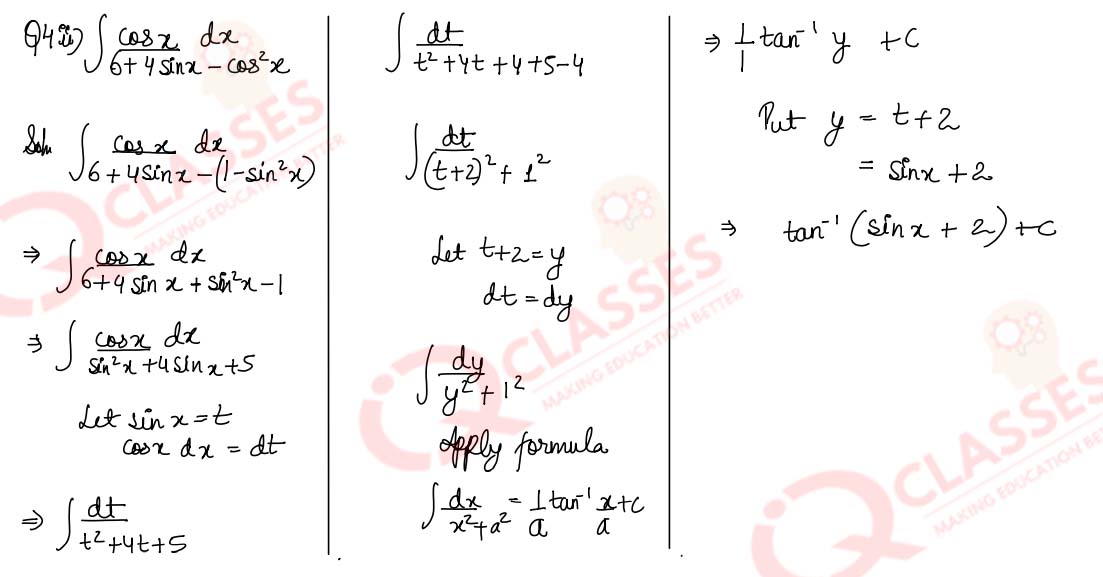 Q4 ii) ∫ cosx dx / 6+4sinx − cos²x
Soln ∫ cosx dx / 6+4sinx−(1−sin²x)
⇒ ∫ cosx dx / 6+4sinx+sin²x−1
⇒ ∫ cosx dx / sin²x+4sinx+5
Let sinx=t
cosx dx = dt
⇒ ∫ dt / t²+4t+5
∫ dt / t²+4t+4+5−4
∫ dt / (t+2)²+1²
Let t+2=y
dt=dy
∫ dy / y²+1²
Apply formula
∫ dx / x²+a² = 1/a tan⁻¹ x/a +c
⇒ 1/1 tan⁻¹ y +c
Put y = t+2
= sinx+2
⇒ tan⁻¹(sinx+2)+c
IQ CLASSES
MAKING EDUCATION BETTER
IQ CLASSES
MAKING EDUCATION BETTER
IQ CLASSES
MAKING EDUCATION BETTER